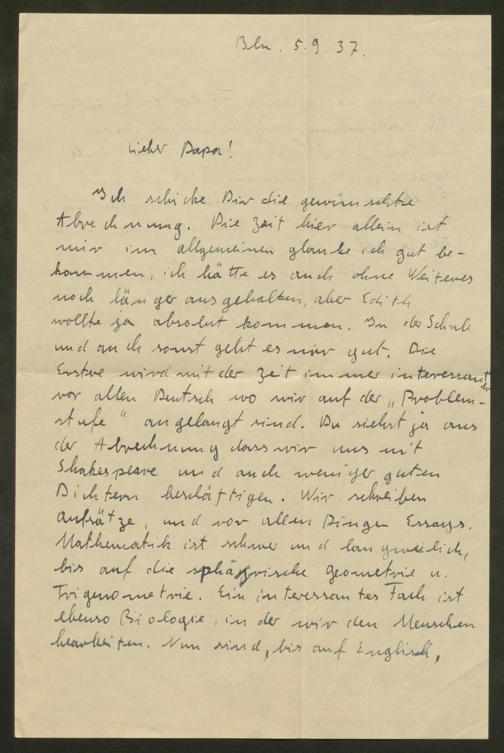 Bln. 5.9.37.
Lieber Papa!
Ich schicke Dir die gewünschte
Abrechnung. Die Zeit hier allein ist
mir im allgemeinen glaube ich gut be-
kommen, ich hätte es auch ohne Weiteres
noch länger ausgehalten, aber Edith
wollte ja absolut kommen. In der Schule
und auch sonst geht es mir gut. Die
Erstre wird mit der Zeit immer interessanter
vor allen Deutsch wo wir auf der „Problem-
stufe" angelangt sind. Du siehst ja aus
der Abrechnung dass wir uns mit
Shakespeare und auch weniger guten
Dichtern beschäftigen. Wir schreiben
Aufsätze, und vor allen Dingen Essays.
Mathematik ist schwer und langweilich,
bis auf die sphärische Geometrie u.
Trigenometrie. Ein interessantes Fach ist
ebenso Biologie, in der wir den Menschen
bearbeiten. Nun sind, bis auf Englisch,